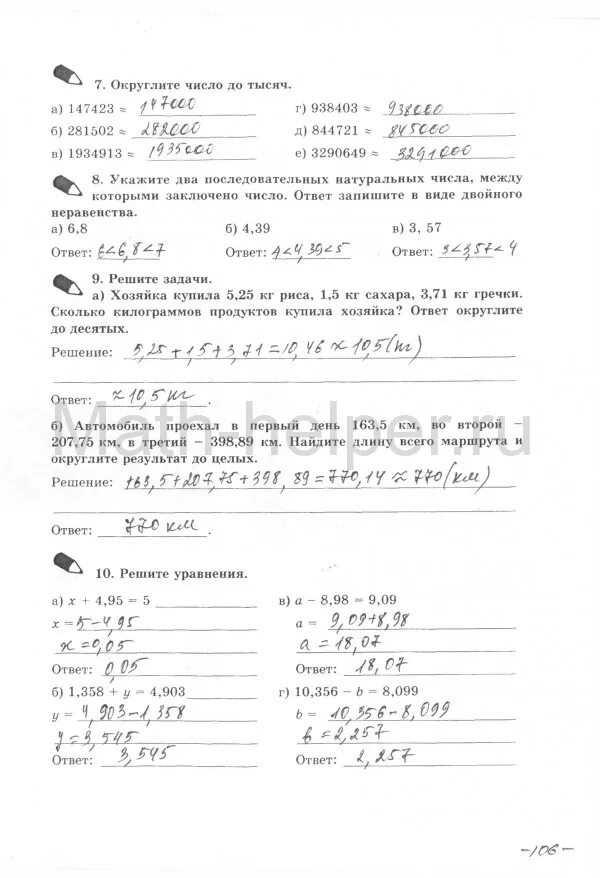 7. Округлите число до тысяч.
а) 147423 ≈ 147000 г) 938403 ≈ 938000
б) 281502 ≈ 282000 д) 844721 ≈ 845000
в) 1934913 ≈ 1935000 е) 3290649 ≈ 3291000
8. Укажите два последовательных натуральных числа, между
которыми заключено число. Ответ запишите в виде двойного
неравенства.
а) 6,8 б) 4,39 в) 3, 57
Ответ: 6<6,8<7 Ответ: 4<4,39<5 Ответ: 3<3,57<4
9. Решите задачи.
а) Хозяйка купила 5,25 кг риса, 1,5 кг сахара, 3,71 кг гречки.
Сколько килограммов продуктов купила хозяйка? Ответ округлите
до десятых.
Решение: 5,25+1,5+3,71=10,46≈10,5(кг)
Ответ: ≈10,5 кг.
Math-helper.ru
б) Автомобиль проехал в первый день 163,5 км, во второй –
207,75 км, в третий – 398,89 км. Найдите длину всего маршрута и
округлите результат до целых.
Решение: 163,5+207,75+398,89=770,14≈770(км)
Ответ: 770 км.
10. Решите уравнения.
а) x + 4,95 = 5 в) a – 8,98 = 9,09
x = 5-4,95 a = 9,09+8,98
x=0,05 a=18,07
Ответ: 0,05 Ответ: 18,07
б) 1,358 + y = 4,903 г) 10,356 – b = 8,099
y = 4,903-1,358 b = 10,356-8,099
y=3,545 b=2,257
Ответ: 3,545 Ответ: 2,257
-106-